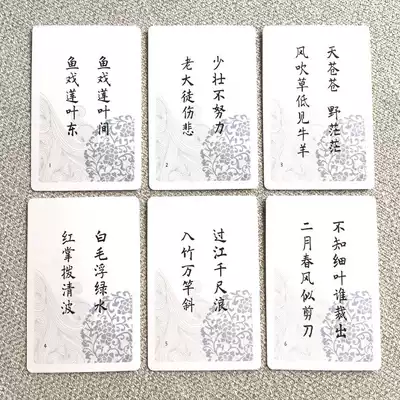 鱼戏莲叶间
鱼戏莲叶东
1
少壮不努力
老大徒伤悲
2
天苍苍 野茫茫
风吹草低见牛羊
3
白毛浮绿水
红掌拨清波
4
过江千尺浪
入竹万竿斜
5
不知细叶谁裁出
二月春风似剪刀
6